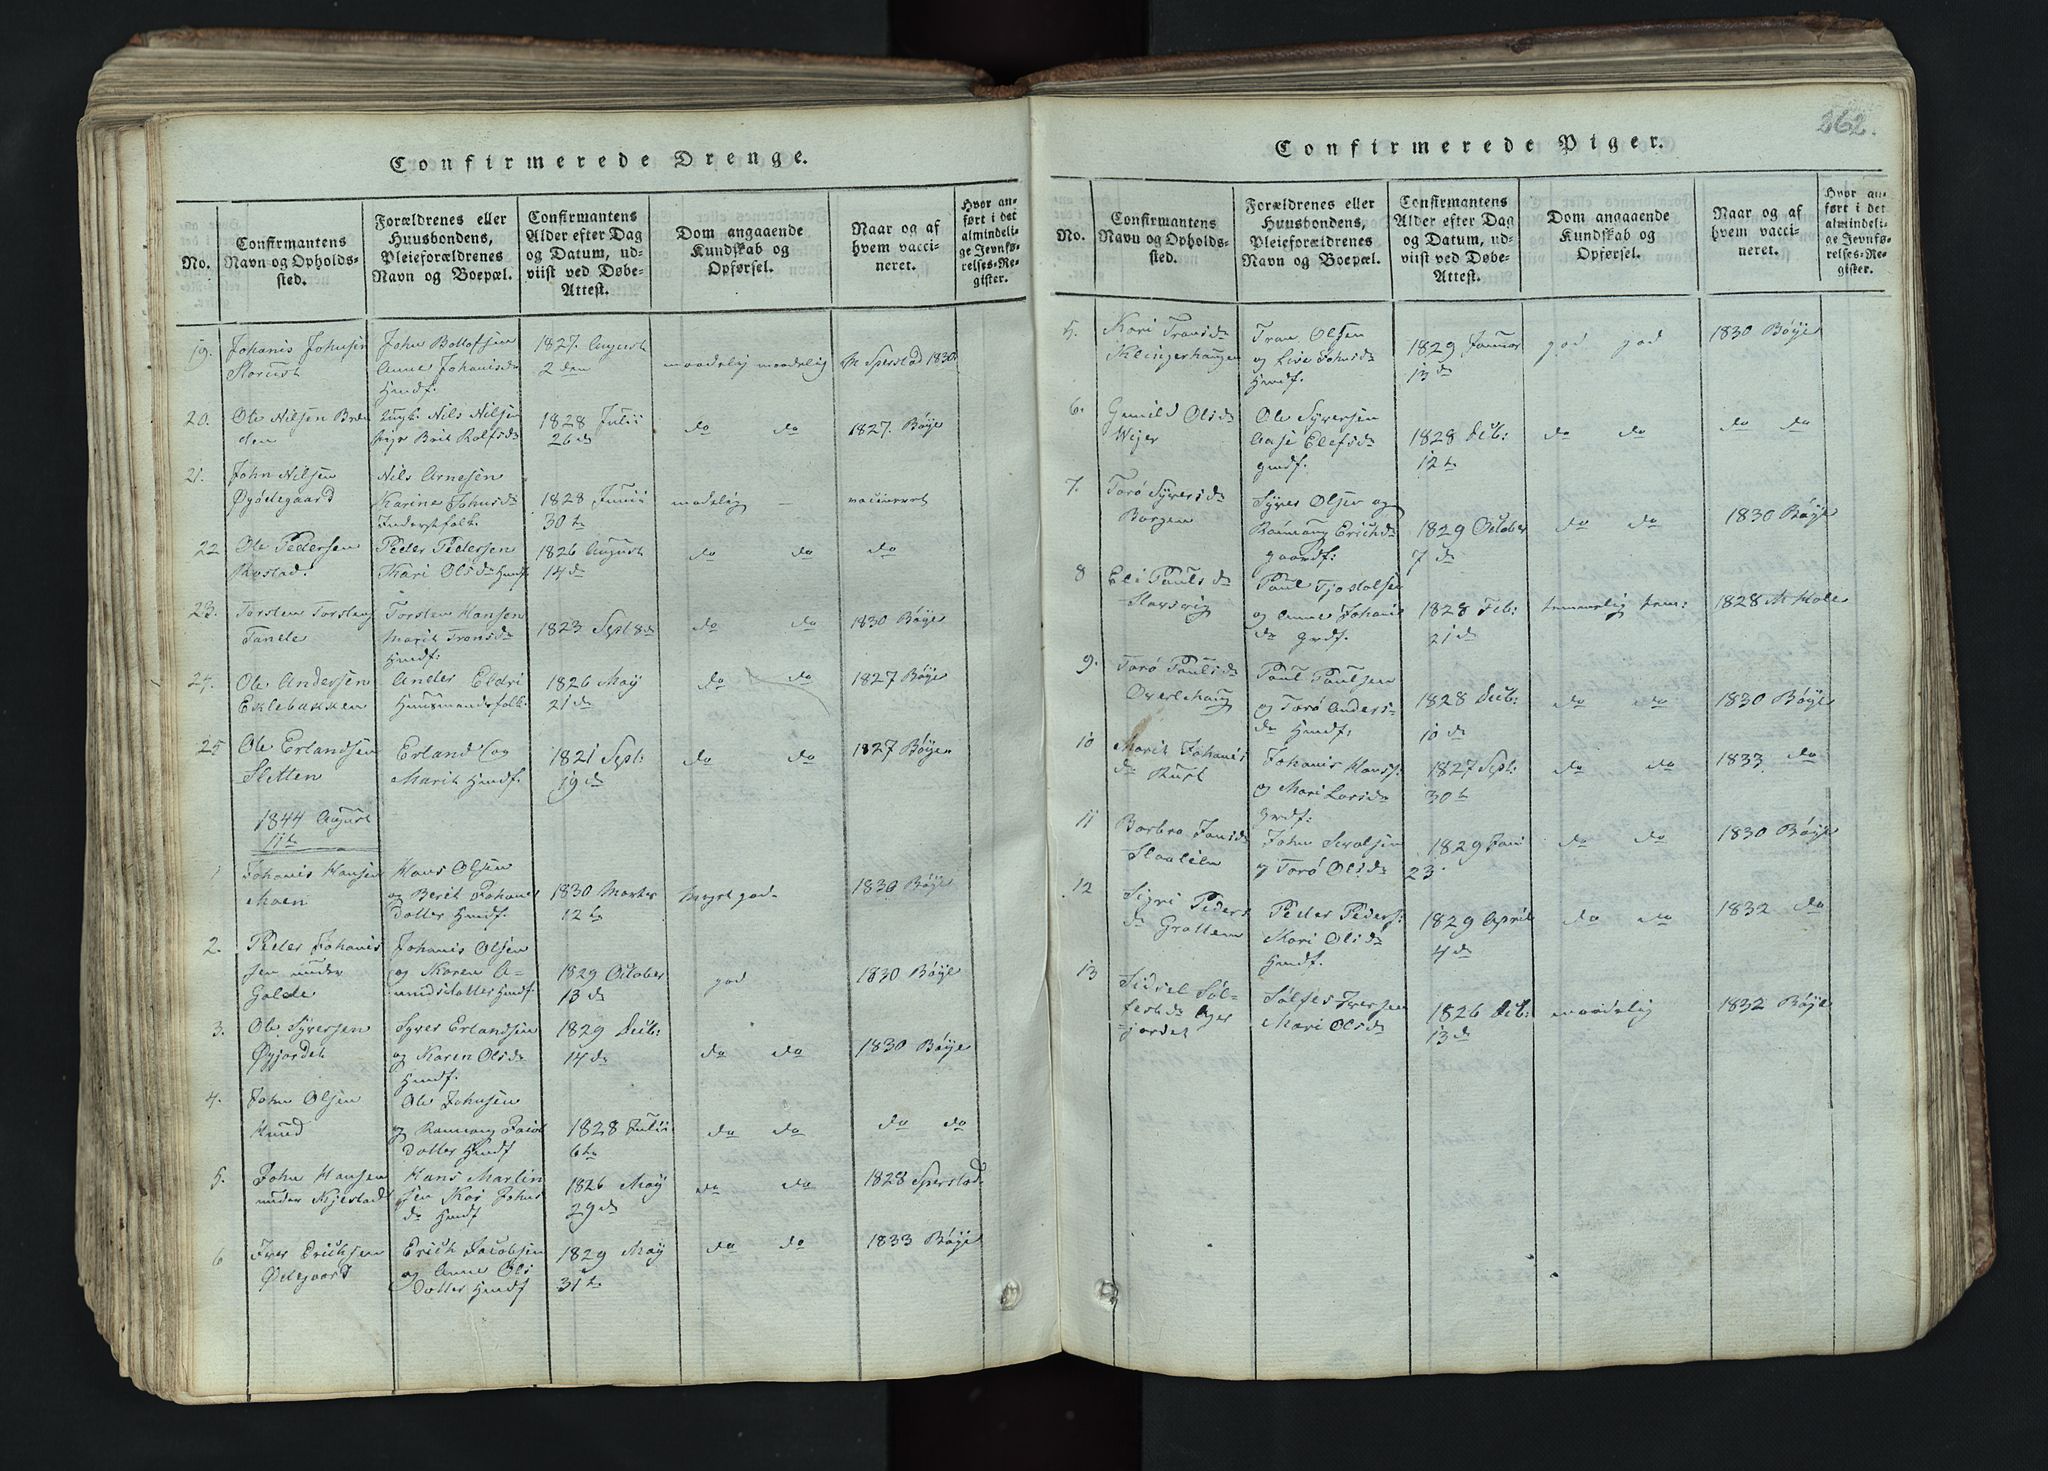 Confirmerede Drenge.
No.
Confirmantens
Navn og Opholds-
sted.
Forældrenes eller
Huusbondens,
Pleieforældrenes
Navn og Boepæl.
Confirmantens
Alder efter Dag
og Datum, ud-
viist ved Døbe-
Attest.
Dom angaaende
Kundskab og
Opførsel.
Naar og af
hvem vacci-
neret.
Hvor an-
ført i det
almindeli-
ge Jevnfø-
relses-Re-
gister.
19. Johanis Johnsen
John Bottolfsen
Anne Johanisd
Hmdf.
1827. August
2 den
maadelig maadelig
Sperstad 1830
20. Ole Nilsen
Nils Nilsen
Brit Rolfsd
1828 Julii
26 d
do do
1827. Bøye
21. John Nilsen
Øyødegaard
Nils Arnesen
Karine Johnsd
Inderstfolk.
1828 Junii
30 te
madelig —
vaccineret
22 Ole Pedersen
Rostad.
Peder Pedersen
Kari Olsd Hmdf
1826 August
14 d
do do
do
23. Torsten Torstens
Tande
Torsten Hansen
Marit Tronsd
Hmdf:
1823 Sept 8 d
do do
1830 Bøye
24. Ole Andersen
Eklebakken
Ander Eldri
Huusmandsfolk
1826 May
21 d
do do
1827 Bøye
25 Ole Erlandsen
Sletten
Erland og
Marit Hmdf.
1821 Sept:
19 d
do do
1827 Bøyen
1844 August
11 te
1 Johanis Hansen
Moen
Hans Olsen
og Berit Johanes
Dotter Hmdf.
1830 Marter
12 te
Meget god
1830 Bøye
2. Peder Johanis
sen under
Golde
Johanis Olsen
og Karen A-
mundsdotter Hmdf.
1829 October
13 d
god
1830 Bøye
3. Ole Syversen
Øyjordet
Syver Erlandsen
og Karen Olsd
Hmdf.
1829 Decb:
14 d
do do
1830 Bøye
4. John Olsen
Ruud
Ole Johnsen
og Ranmoug Jacob
Dotter Hmdf
1828 Julii
6 te
do do
do do
5. John Hansen
under Kjestad
Hans Martin
sen Kari Johns
d Hmdf
1826 May
29 d
do do
1828 Sperstad
6 Iver Erichsen
Ødegaard
Erich Jacobsen
og Anne Ols
Dotter Hmdf
1829 May
31 te
do do
1833 Bøye
362.
Confirmerede Piger.
No.
Confirmantens
Navn og Opholds-
sted.
Forældrenes eller
Huusbondens,
Pleieforældrenes
Navn og Boepæl.
Confirmantens
Alder efter Dag
og Datum, ud-
viist ved Døbe-
Attest.
Dom angaaende
Kundskab og
Opførsel.
Naar og af
hvem vacci-
neret.
Hvor an-
ført i det
almindeli-
ge Jevnfø-
relses-Re-
gister.
5. Kari Tronsd
Klingerhaugen
Tron Olsen
og Live Johnsd
Hmdf.
1829 Januar
13 d
god god
1830 Bøye
6. Gunild Olsd
Wejer
Ole Syversen
Aase Elefsd
gmdf.
1828 Decb:
12 te
do do
do do
7. Torø Syversd
Borgen
Syver Olsen og
Ranmoug Erichsd
gaardf:
1829 October
7 d
do do
1830 Bøye
8 Eli Paulsd
Slorsvig
Paul Tjostolsen
og Anne Johanis
d Grdf.
1828 Feb:
21 d
temmelig tem:
1828 M Kolle
9. Torø Paulsd
Overlehaug
Paul Paulsen
og Torø Anders-
d Hmdf:
1828 Decb:
10 d
do do
1830 Bøye
10 Marit Johanis
d Rust
Johanis Hanss:
og Mari Larsd
Grdf:
1827 Sept:
30 te
do do
1833 do
11 Barbro Jonsd
Slaalien
John
og Torø Olsd
1829 Jan
23.
do do
1830 Bøye
12 Sigri Peders
d Grøttem
Peder Peders:
Mari Olsd
Hmdf.
1829 April
4 d
do do
1832 do
13 Sidsel Søl-
festd Ager
=jordet
Sølfes Iversen
Mari Olsd
1826 Decb:
13 d
maadelig
1832 Bøye